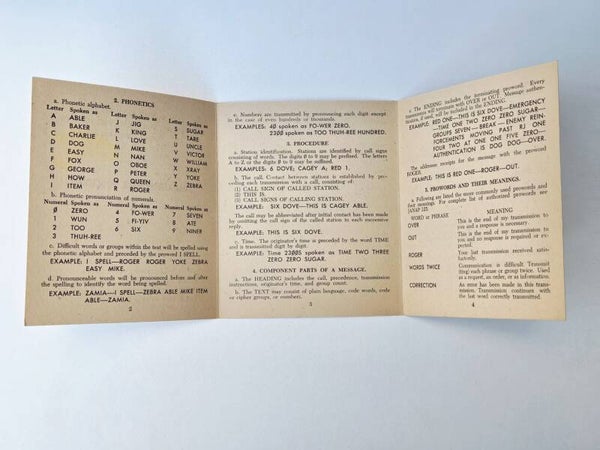 2. PHONETICS
a. Phonetic alphabet.
Letter Spoken as Letter Spoken as Letter Spoken as
A ABLE J JIG S SUGAR
B BAKER K KING T TARE
C CHARLIE L LOVE U UNCLE
D DOG M MIKE V VICTOR
E EASY N NAN W WILLIAM
F FOX O OBOE X XRAY
G GEORGE P PETER Y YOKE
H HOW Q QUEEN Z ZEBRA
I ITEM R ROGER
b. Phonetic pronunciation of numerals.
Numeral Spoken as Numeral Spoken as Numeral Spoken as
0 ZERO 4 FO-WER 7 SEVEN
1 WUN 5 FI-YIV 8 ATE
2 TOO 6 SIX 9 NINER
3 THUH-REE
c. Difficult words or groups within the text will be spelled using
the phonetic alphabet and preceded by the proword I SPELL.
EXAMPLE: I SPELL—ROGER ROGER YOKE ZEBRA
EASY MIKE.
d. Pronounceable words will be pronounced before and after
the spelling to identify the word being spelled.
EXAMPLE: ZAMIA—I SPELL—ZEBRA ABLE MIKE ITEM
ABLE—ZAMIA.
2
e. Numbers are transmitted by pronouncing each digit except
in the case of even hundreds or thousands.
EXAMPLES: 40 spoken as FO-WER ZERO.
2300 spoken as TOO THUH-REE HUNDRED.
3. PROCEDURE
a. Station identification. Stations are identified by call signs
consisting of words. The digits 0 to 9 may be prefixed. The letters
A to Z or the digits 0 to 9 may be suffixed.
EXAMPLES: 6 DOVE; CAGEY A; RED 1.
b. The call. Contact between stations is established by pre-
ceding each transmission with a call, consisting of:
(1) CALL SIGN OF CALLED STATION.
(2) THIS IS.
(3) CALL SIGNS OF CALLING STATION.
EXAMPLE: SIX DOVE—THIS IS CAGEY ABLE.
The call may be abbreviated after initial contact has been made
by omitting the call sign of the called station in each successive
reply.
EXAMPLE: THIS IS SIX DOVE.
c. Time. The originator's time is preceded by the word TIME
and is transmitted digit by digit.
EXAMPLE: Time 2300S spoken as TIME TWO THREE
ZERO ZERO SUGAR.
4. COMPONENT PARTS OF A MESSAGE.
a. The HEADING includes the call, precedence, transmission
instructions, originator's time, and group count.
b. The TEXT may consist of plain language, code words, code
or cipher groups, or numbers.
3
c. The ENDING includes the terminating proword. Every
transmission will terminate with OVER or OUT. Message authen-
tication, if used, will be included in the ENDING.
EXAMPLE: RED ONE—THIS IS SIX DOVE—EMERGENCY
—TIME ONE TWO ZERO ZERO SUGAR—
GROUPS SEVEN—BREAK—ENEMY REIN-
FORCEMENTS MOVING PAST RJ ONE
FOUR TWO AT ONE ONE FIVE ZERO—
AUTHENTICATION IS DOG DOG—OVER.
The addressee receipts for the message with the proword
ROGER.
EXAMPLE: THIS IS RED ONE—ROGER—OUT.
5. PROWORDS AND THEIR MEANINGS.
a. Following are listed the more commonly used prowords and
their meanings. For complete list of authorized prowords see
JANAP 125.
WORD or PHRASE MEANING
OVER This is the end of my transmission to
you and a response is necessary.
OUT This is the end of my transmission to
you and no response is required or ex-
pected.
ROGER Your last transmission received satis-
factorily.
WORDS TWICE Communication is difficult. Transmit
(ting) each phrase or group twice. Used
as a request, as order, or as information.
CORRECTION An error has been made in this trans-
mission. Transmission continues with
the last word correctly transmitted.
4